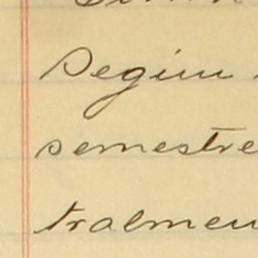 Segun
semestre
tralmen